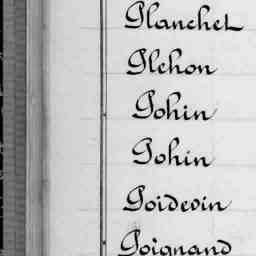 Planchet
Plehon
Pohin
Pohin
Poidevin
Poignand